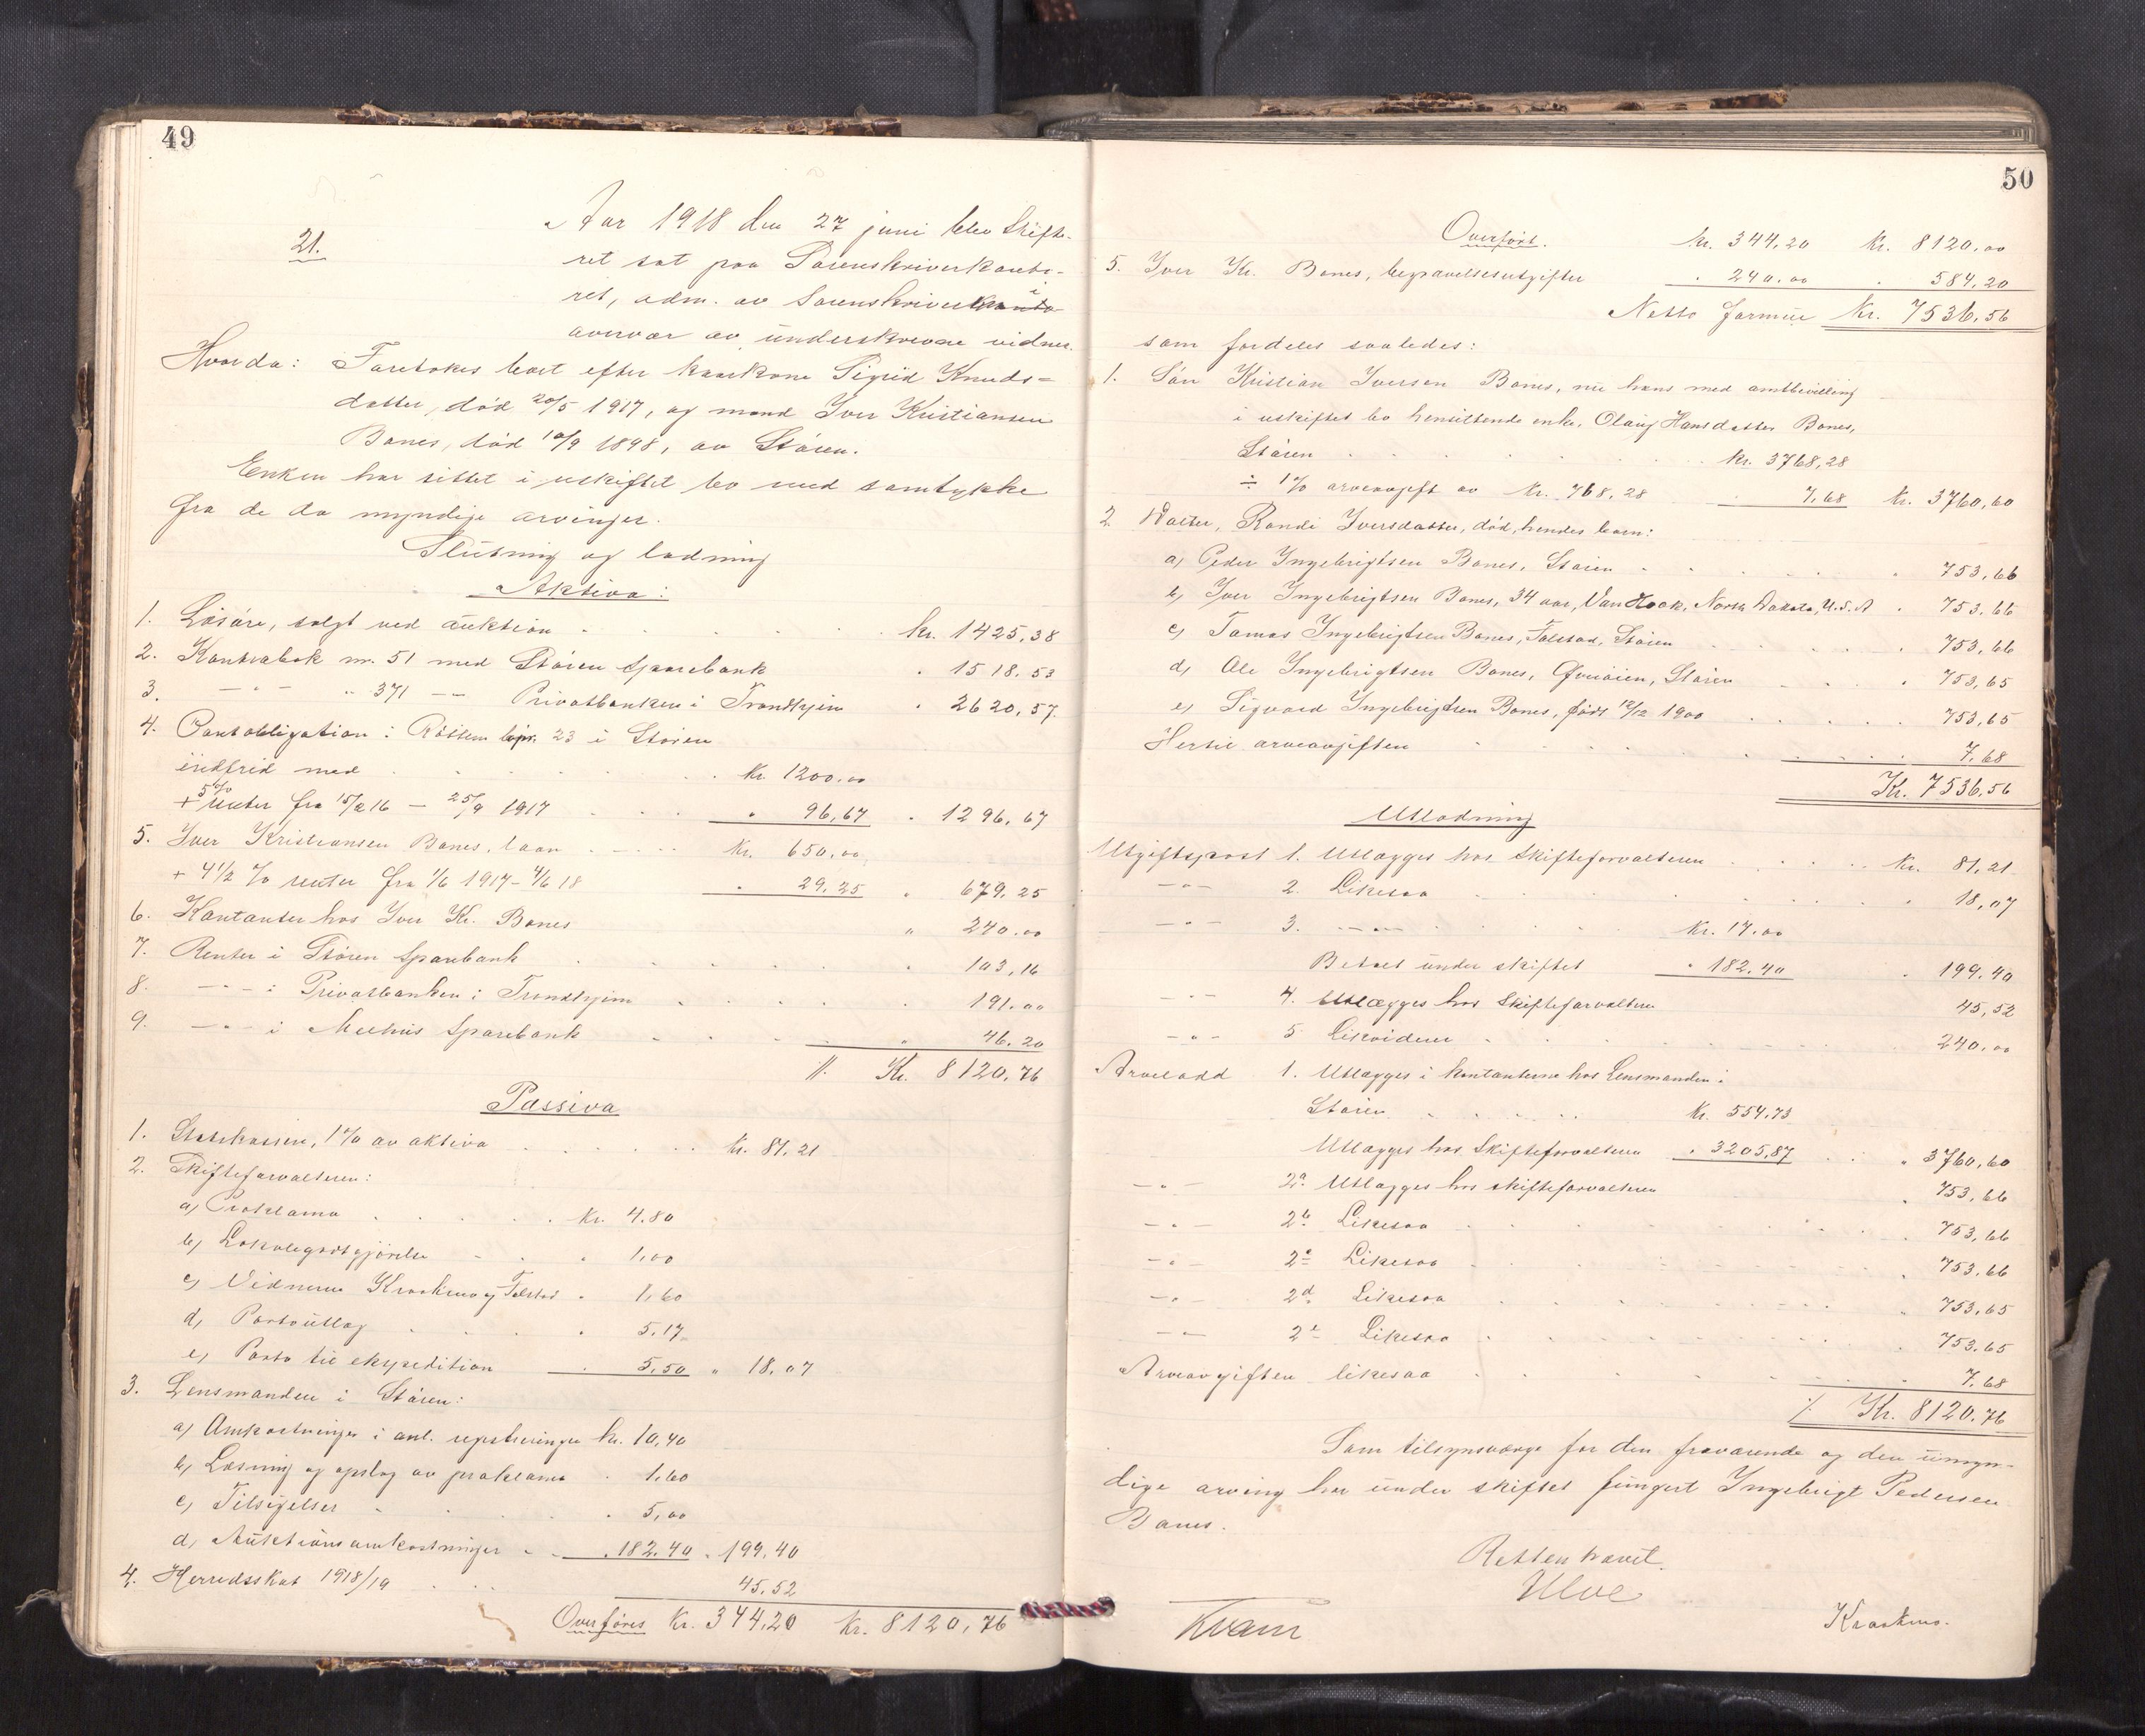 49
21.
Aar 1918 den 27 juni blev skifte-
ret sat paa Sorenskriverkonto-
ret, adm. av Sorenskriveren i
overvær av underskrevne vidner.
Hvorda: Foretokes boet efter kaarkone Sigrid Knuds-
datter, död 20/5 1917, og mand Iver Kristiansen
Bones, död 10/9 1898, av Stören.
Enken har sittet i uskiftet bo med samtykke
fra de da myndige arvinger.
Slutning og lodning
Aktiva:
1. Lösöre, solgt ved auktion . . . kr. 1425,38
2. Kontrabok nr. 51 med Stören Sparebank " 1518,53
3. —"— " 371 —"— Privatbanken i Trondhjem " 2620,57
4. Pantobligation i Röttem bpr. 23 i Stören
indfrid med . . . Kr. 1200.00
+ 5% renter fra 15/2 16 — 25/9 1917 . . . " 96,67 " 1296,67
5. Iver Kristiansen Bones, laan . . . Kr. 650,00
+ 4 1/2 % renter fra 1/6 1917 - 1/6 18 " 29.25 " 679,25
6. Kontanter hos Iver Kr. Bones " 240.00
7. Renter i Stören Sparebank . . . " 103,16
8. —"— i Privatbanken i Trondhjem . . . " 191.00
9. —"— i Melhus Sparebank . . . " 46.20
//. Kr. 8120,76
Passiva
1. Statskassen, 1% av aktiva . . . Kr. 81,21
2. Skifteforvalteren:
a) Proklama . . . Kr. 4.80
b) Lokalegodtgjörelse . . . " 1,00
c) Vidnerne Kraakmo og Folstad " 1,60
d) Portoutlæg . . . " 5.17
e) Porto til ekspedition " 5,50 " 18,07
3. Lensmanden i Stören:
a) Omkostninger i anl. registreringen kr. 10,40
b) Læsning og opslag av proklama " 1.60
c) Tilsigelser . . . " 5,00
d) Auktionsomkostninger . . . " 182.40 " 199.40
4. Herredsskat 1918/19 . . . 45.52
Overföres Kr. 344,20 Kr. 8120,76
50
Overfört. kr. 344,20 Kr. 8120,00
5. Iver Kr. Bones, begravelsesutgifter " 240.00 " 584,20
Netto formue Kr. 7536,56
som fordeles saaledes:
1. Sön Kristian Iversen Bones, nu hans med amtbevilling
i uskiftet bo hensittende enke, Olaug Hansdatter Bones,
Stören . . . Kr. 3768,28
÷ 1% arveavgift av Kr. 768,28 . . . 7,68 Kr. 3760,60
2 Datter, Randi Iversdatter, död, hendes barn:
a) Peder Ingebrigtsen Bones, Stören . . . " 753,66
b) Iver Ingebrigtsen Bones, 34 aar, Van Hook, North Dakota, U.S.A " 753.66
c) Tomas Ingebrigtsen Bones, Folstad, Stören . . . " 753,66
d) Ole Ingebrigtsen Bones, Stören . . . " 753,65
e) Sigvard Ingebrigtsen Bones, födt 12/12 1900 . . . 753,65
Hertil arveavgiften . . . 7.68
Kr. 7536,56
Utlodning
Utgiftspost 1. Utlægges hos Skifteforvalteren . . . Kr. 81,21
—"— 2. Likesaa . . . " 18,07
—"— 3. —"— . . . Kr. 17.00
Betalt under skiftet " 182.40 " 199.40
—"— 4. Utlægges hos Skifteforvalteren 45,52
—"— 5 Likviderer . . . 240.00
Arvelodd 1. Utlægges i kontanterne hos Lensmanden i
Stören . . . Kr. 554,73
Utlægges hos Skifteforvalteren " 3205,87 . . . " 3760,60
—"— 2a Utlægges hos skifteforvalteren " 753,66
—"— 2b Likesaa . . . 753,66
—"— 2c Likesaa . . . " 753.66
—"— 2d Likesaa . . . " 753,65
—"— 2e Likesaa . . . " 753.65
Arveavgiften likesaa . . . 7.68
//. Kr. 8120.76
Som tilsynsværge for den fraværende og den umyn-
dige arving har under skiftet fungert Ingebrigt Pedersen
Bones.
Retten hævet.
Ulve
Kvam Kraakmo.